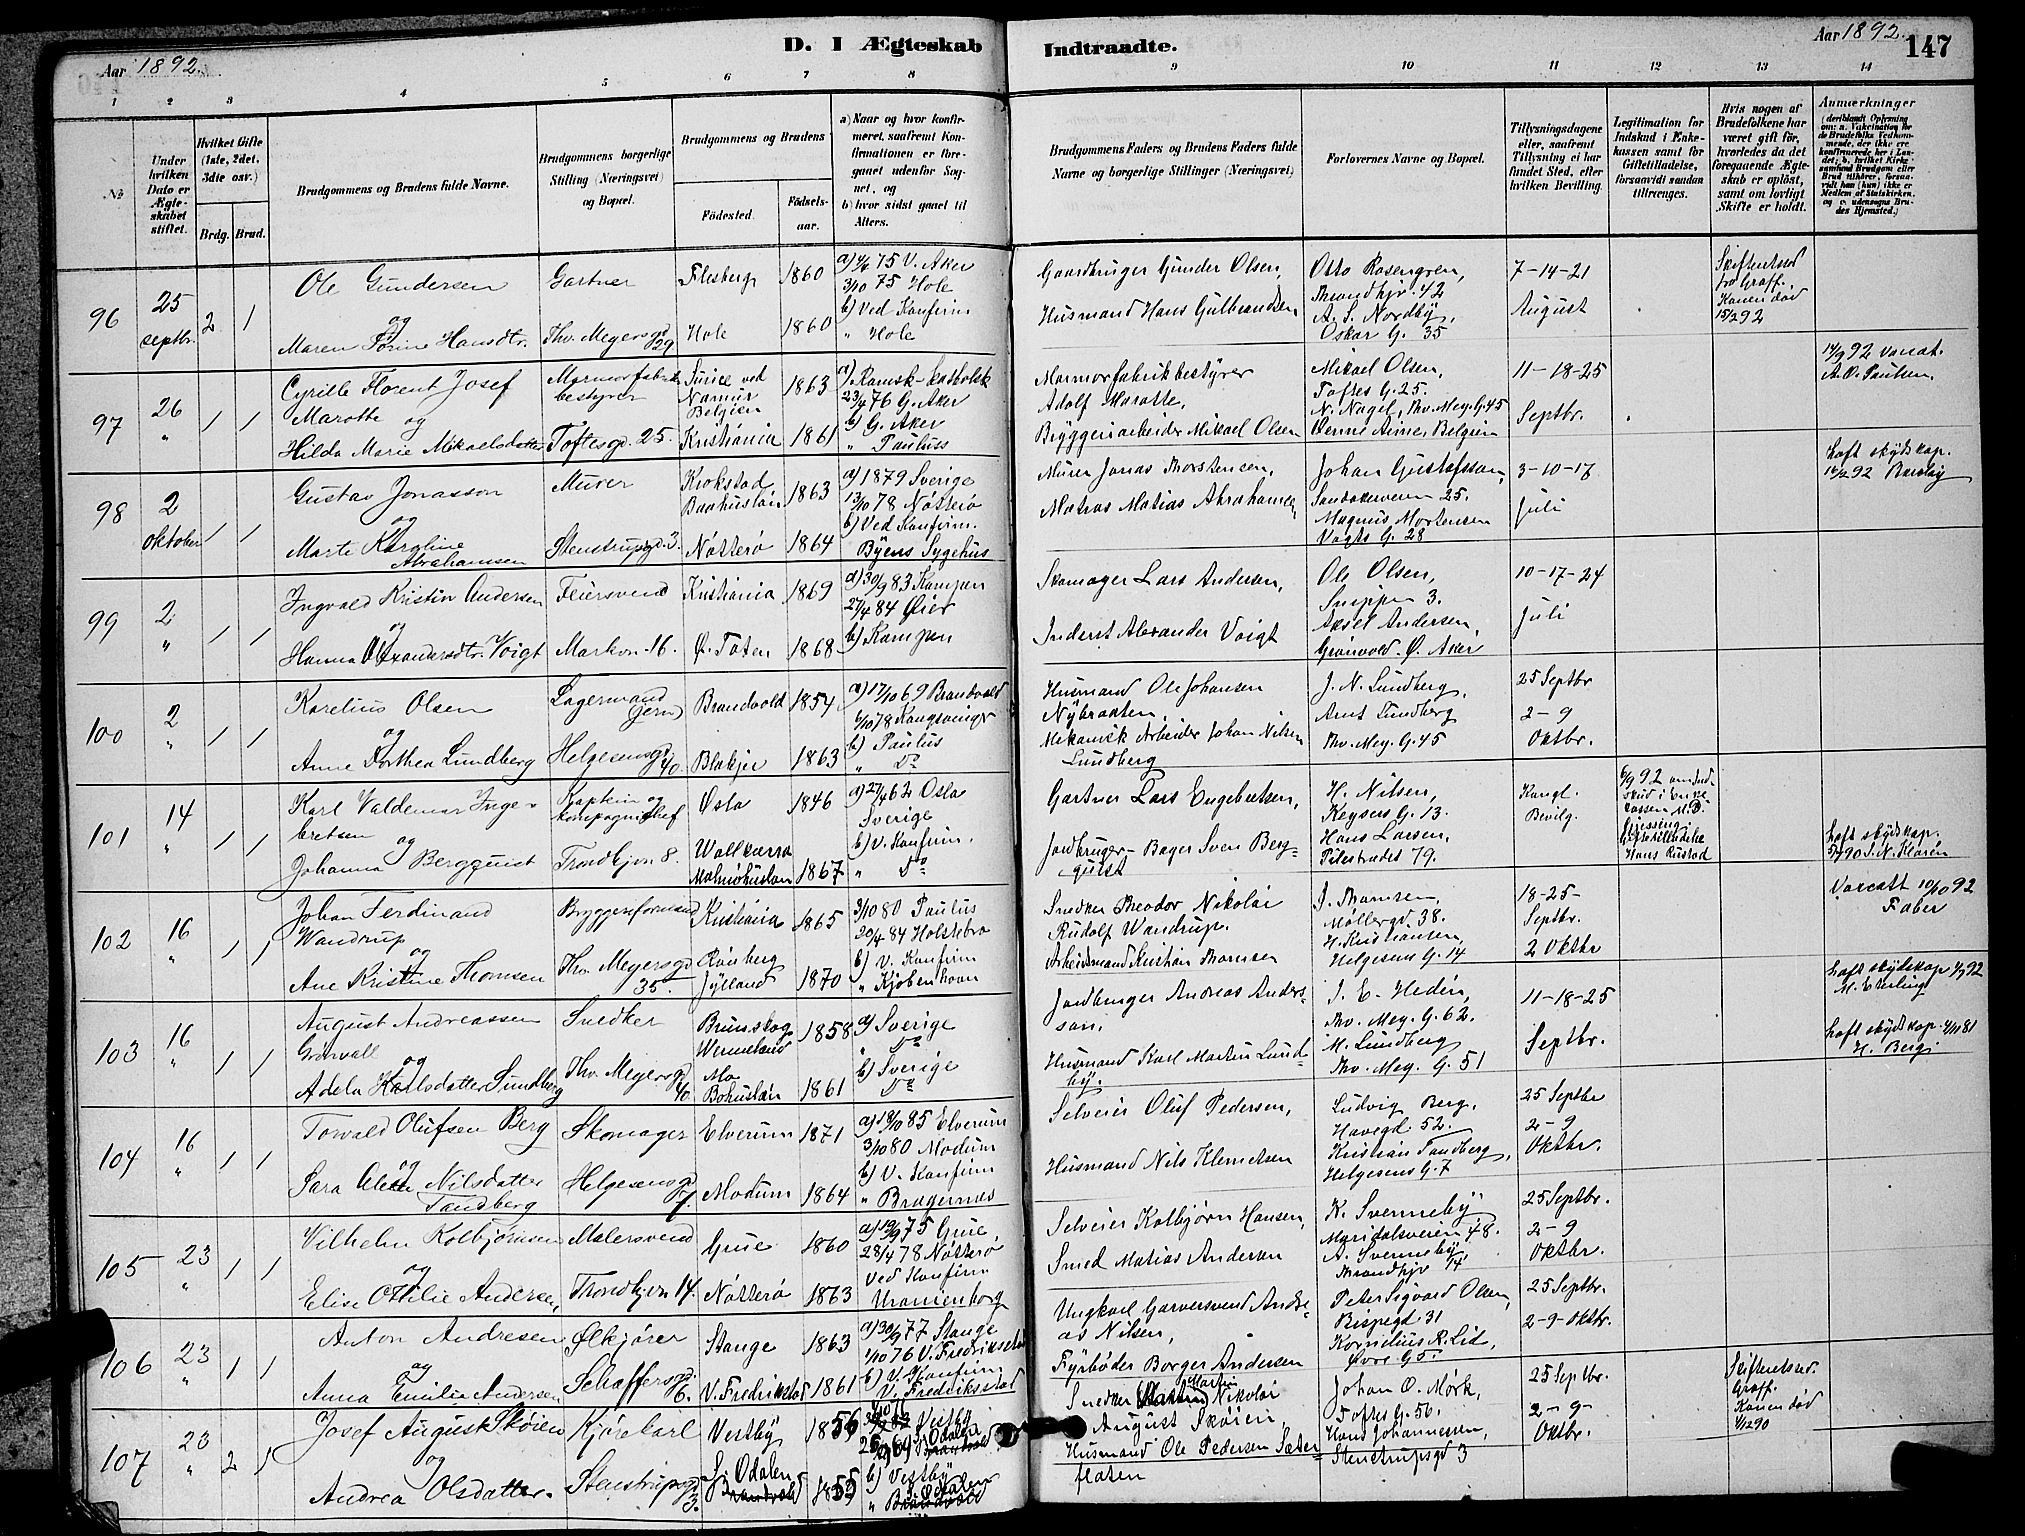 Aar 1892.
D. I Ægteskab Indtraadte.
Aar 1892.
147
1 2 3 4 5 6 7 8 9 10 11 12 13 14
№
Under hvilken Dato er Ægteskabet stiftet.
Hvilket Gifte (1ste, 2det, 3die osv.)
Brdg. Brud.
Brudgommens og Brudens fulde Navne.
Brudgommens borgerlige Stilling (Næringsvei) og Bopæl.
Brudgommens og Brudens
Födested.
Födselsaar.
a) Naar og hvor konfirmeret, saafremt Konfirmationen er foregaaet udenfor Sognet, og
b) hvor sidst gaaet til Alters.
Brudgommens Faders og Brudens Faders fulde Navne og borgerlige Stillinger (Næringsvei)
Forlovernes Navne og Bopæl.
Tillysningsdagene eller, saafremt Tillysning ei har fundet Sted, efter hvilken Bevilling.
Legitimation for Indskud i Enkekassen samt for Giftetilladelse, forsaavidt saadan tiltrænges.
Hvis nogen af Brudefolkene har været gift før, hvorledes da det foregaaende Ægteskab er oplöst, samt om lovligt Skifte er holdt.
Anmærkninger
96
25 septbr.
2 1
Ole Gundersen
og
Maren Sörine Hansdtr.
Gartner
Thv. Meyersgd 29
Flesberg 1860
Hole 1860
75 V. Aker
3/10 75 Hole
b) Ved Konfirm
" Hole
Gaardbruger Gunder Olsen,
Husmand Hans Gulbrandsen,
Otto Rosengren,
Trondhjv. 42
A. S. Nordby,
Oskar G. 35
7-14-21
August
Skifteattest fra Graff.
Konen död
15/2 92
97
26 "
1 1
Cyrille Florent Josef
Marotte og
Hilda Marie Mikaelsdatter
Marmorfabrikbestyrer
Toftesgd. 25.
Surice ved Namur Belgien 1863
Kristiania 1861
a) Romsk-katholsk
23/4 76 G. Aker
b) G. Aker
" Paulus
Marmorfabrikbestyrer
Adolf Marotte,
Bryggeriarbeider Mikael Olsen
Mikael Olsen,
Toftes G. 25.
N. Nagel, Thv. Mey. G. 45
11-18-25
Septbr.
A. O. Paulsen.
98
2 oktober
1 1
Gustav Jonasson
og
Marte Karoline
Abrahamsen
Murer
Stenstrupsgd. 3.
Krokstad Baahuslän 1863
Nötterö 1864
a) 1879 Sverige
13/10 78 Nötterö
b) Ved Konfirm.
Byens Sygehus
Murer Jonas Thorstensen,
Matros Matias Abrahamsen,
Johan Gustafsson,
Sandakerveien 25.
Magnus Mortensen
Vogts G. 28
3-10-17
juli
Løst skydskop.
99
2 "
1 1
Ingvald Kristin Andersen
og
Hanna Alexandersdtr. Voigt
Feiersvend
Markvn. 16.
Kristiania 1869
Ö. Toten 1868
a) 30/9 83 Kampen
27/4 84 Öier
b) Kampen
Skomager Lars Andersen,
Inderst Alexander Voigt
Ole Olsen,
Snippen 3.
Aksel Andersen,
Grönvold. Ö. Aker
10-17-24
juli
100
2 "
1 1
Karelius Olsen
og
Anne Dorthea Lundberg
Lagermand (jern)
Helgesensgd 40.
Brandvold 1854
Blakjer 1863
a) 17/10 69 Brandvold
6/10 78 Kongsvinger
b) Paulus
" Do
Husmand Ole Johansen
Nybraaten,
Mekanisk Arbeider Johan Nilsen
Lundberg
J. N. Lundberg,
Arnt Lundberg
Thv. Mey. G. 45
25 Septbr
2-9
Oktbr.
101
14 "
1 1
Karl Valdemar Engebretsen
og
Johanna Bergquist
Kaptein og kompagnichef
Trondhjvn 8.
Oslo 1846
Wallkärra Malmöhuslän 1867
a) 27/4 62 Oslo
Sverige
b) V. Konfirm.
" Do
Gartner Lars Engebretsen,
Jordbruger - Bager Sven Bergquist
H. Nilsen,
Keysers G. 13.
Hans Larsen,
Pilestrædet 79.
Kongl.
Bevilg.
6/9 92 om Indskud i Enkekassen
Giftetilladelse
Hans Rustad
Løst skydskop.
102
16 "
1 1
Johan Ferdinand
Wandrup
og
Ane Kristine Thomsen
Bryggesformand
Thv. Meyersgd 35.
Kristiania 1865
Jylland 1870
3/10 80 Paulus
20/4 84 Holstebro
b) V. Konfirm
" Kjöbenhavn
Snedker Theodor Nikolai
Rudolf Wandrup.
Arbeidsmand Kristian Thomsen
J. Thomsen,
Möllergd 38.
H. Kristiansen,
Helgesens G. 14
18-25-
Septbr.
2 Oktbr
10/10 92
Faber
103
16 "
1 1
August Andreassen
og
Adela Karlsdatter Lundberg
Snedker
Thv. Meyersgd 40.
Brunskog Wermeland 1858
Mo Bohuslän 1861
a) Sverige
" Do
b) Sverige
Do
Jordbruger Andreas Andersson.
Husmand Karl Martin Lundby.
J. E. Hedén,
Thv. Mey. G. 62.
M. Lundberg
Thv. Mey. G. 51
11-18-25
Septbr.
H. Berg
104
16 "
1 1
Torvald Olufsen Berg
og
Sara Olette Nilsdatter
Tandberg
Skomager
Helgesensgd 7.
Elverum 1871
Modum 1864
a) 18/10 85 Elverum
3/10 80 Modum
b) V. Konfirm
" Bragernæs
Selveier Oluf Pedersen,
Husmand Nils Klemetsen
Ludvig Berg,
Havegd. 52.
Kristian Tandberg,
Helgesens G. 7
25 Septbr
2-9
Oktbr.
105
23 "
1 1
Vilhelm Kolbjörnsen
og
Elise Othilie Andersen,
Malersvend
Trondhjvn 14.
Grue 1860
Nötterö 1863
a) 19/9 75 Grue,
28/4 78 Nötterö
Ved Konfirm
Uranienborg
Selveier Kolbjørn Hansen,
Smed Matias Andersen
K. Svenneby
Maridalsveien 48.
A. Svenneby,
Trondhjv 14
25 Septbr.
2-9
Oktbr.
106
23 "
1 1
Anton Andresen
og
Anna Emilie Andersen
Ølkjører
Schaffersgd. 6.
Stange 1863
V. Fredrikstad 1861
a) 30/9 77 Stange
1/10 76 V. Fredriksstad
b) V. Konfirm
V. Fredriksstad
Ungkarl Garversvend Andreas Nilsen,
Fyrbøder Borger Andersen
Peter Sigvard Olsen,
Bispegd 31
Kornelius R. Lid,
Øvre G 5.
25 Septbr.
2-9-Oktbr.
107
23 "
2 1
Josef August Skøien
og
Andrea Olsdatter.
Kjørekarl
Stenstrupsgd 3.
Vestby 1856
S. Odalen 1855
Vestby
b) Vestby
Snedker Martin Nikolai
August Skøien,
Husmand Ole Pedersen Sæterfloten
Johan O. Mørk,
Toftes G. 50.
Hans Johannessen,
Stenstrupsgd 3
25 Septbr.
2-9-
Oktbr.
Skifteattest.
Graff.
Konen död